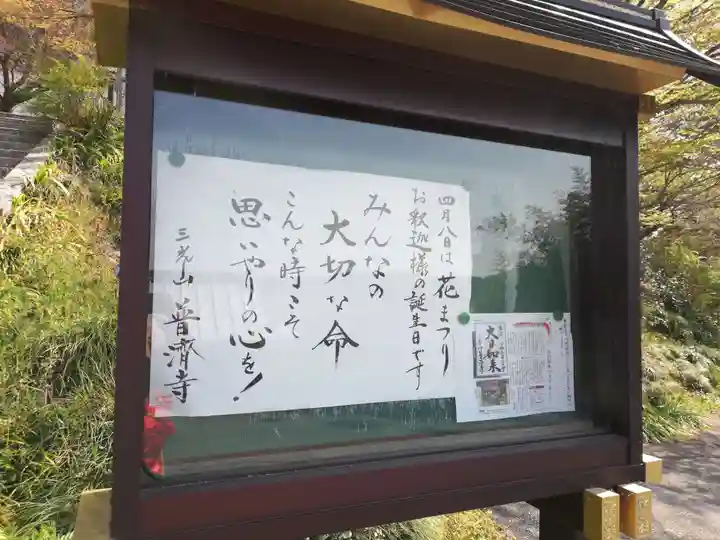 四月八日は花まつり
お釈迦様の誕生日です
みんなの
大切な命
こんな時こそ
思いやりの心を!
三光山 普濟寺
大日如来